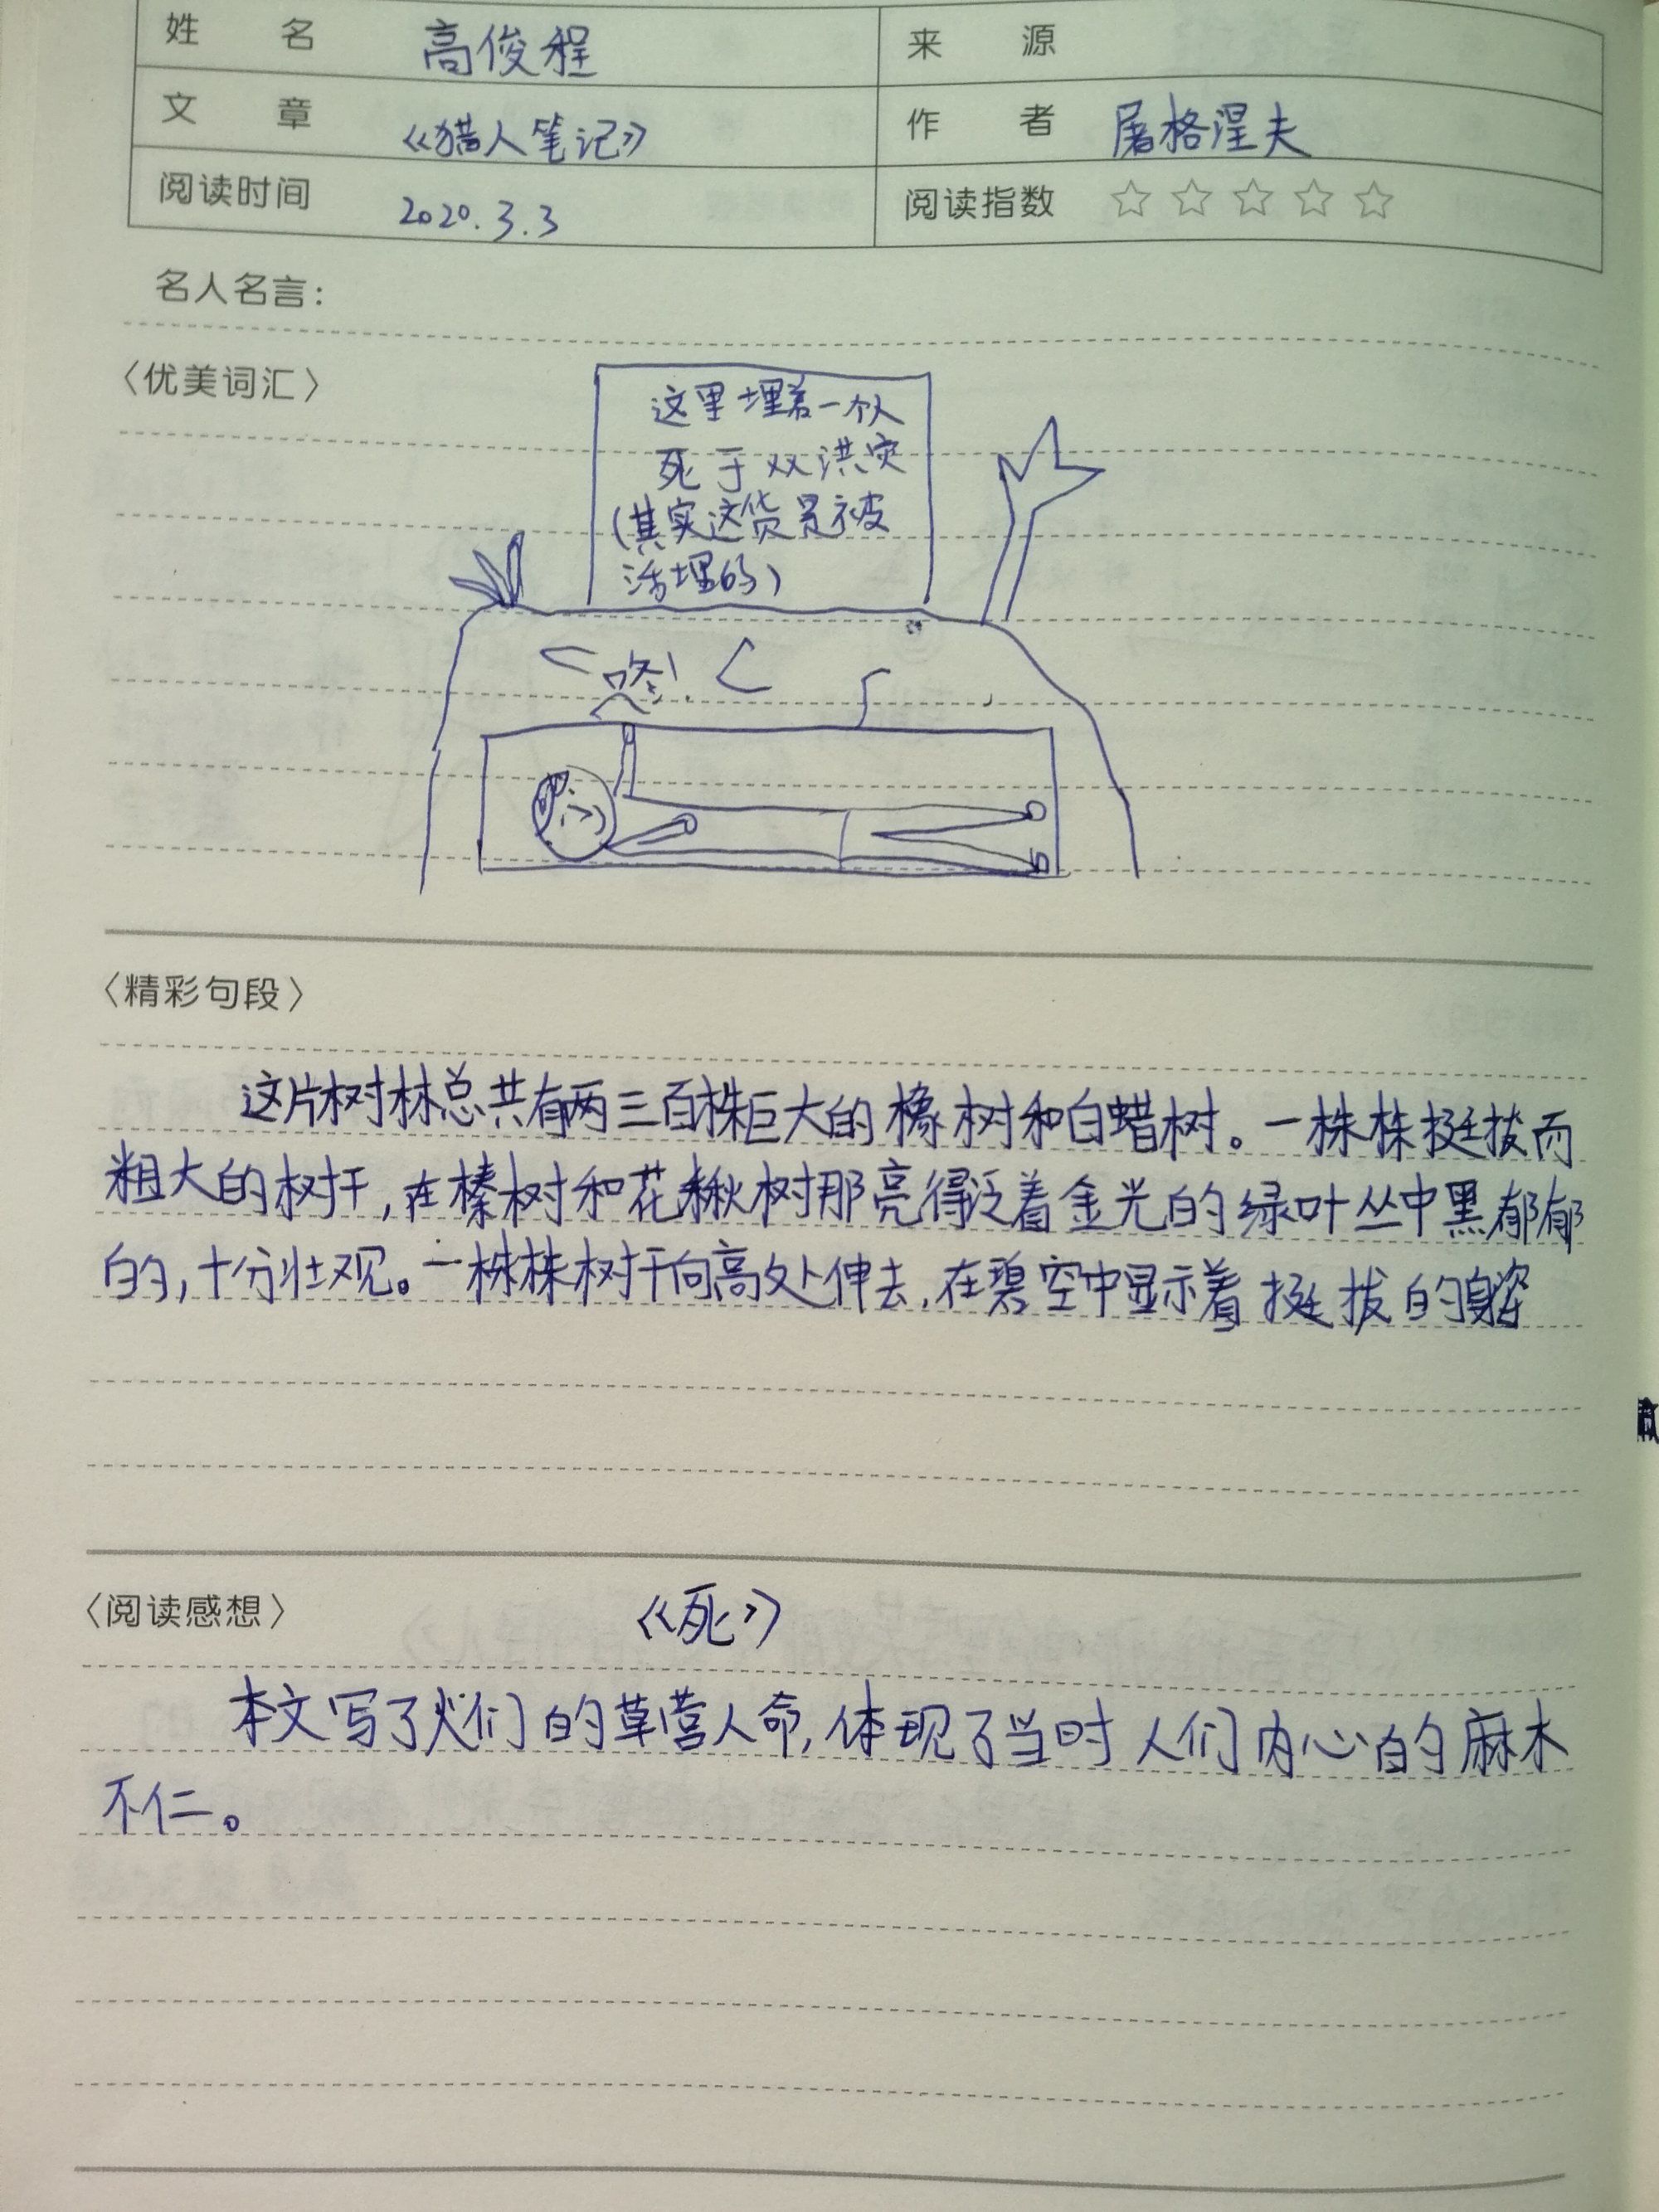 姓 名 高俊程 来 源
文 章 《猎人笔记》 作 者 屠格涅夫
阅读时间 2020.3.3 阅读指数 ☆☆☆☆☆
名人名言：
〈优美词汇〉
这里埋着一个人
死于双洪灾
(其实这货是被
活埋的)
咚!
〈精彩句段〉
这片树林总共有两三百株巨大的橡树和白蜡树。一株株挺拔而
粗大的树干,在榛树和花楸树那亮得泛着金光的绿叶丛中黑郁郁
的,十分壮观。一株株树干向高处伸去,在碧空中显示着挺拔的身姿
〈阅读感想〉 《死》
本文写了人们的草菅人命,体现了当时人们内心的麻木
不仁。